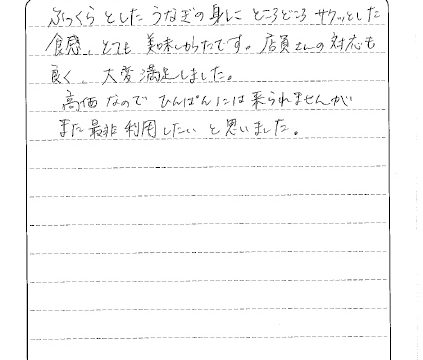 ふっくらとしたうなぎの身にところどころサクッとした
食感、とても美味しかったです。店員さんの対応も
良く、大変満足しました。
高価なのでひんぱんには来られませんが
また最非利用したいと思いました。